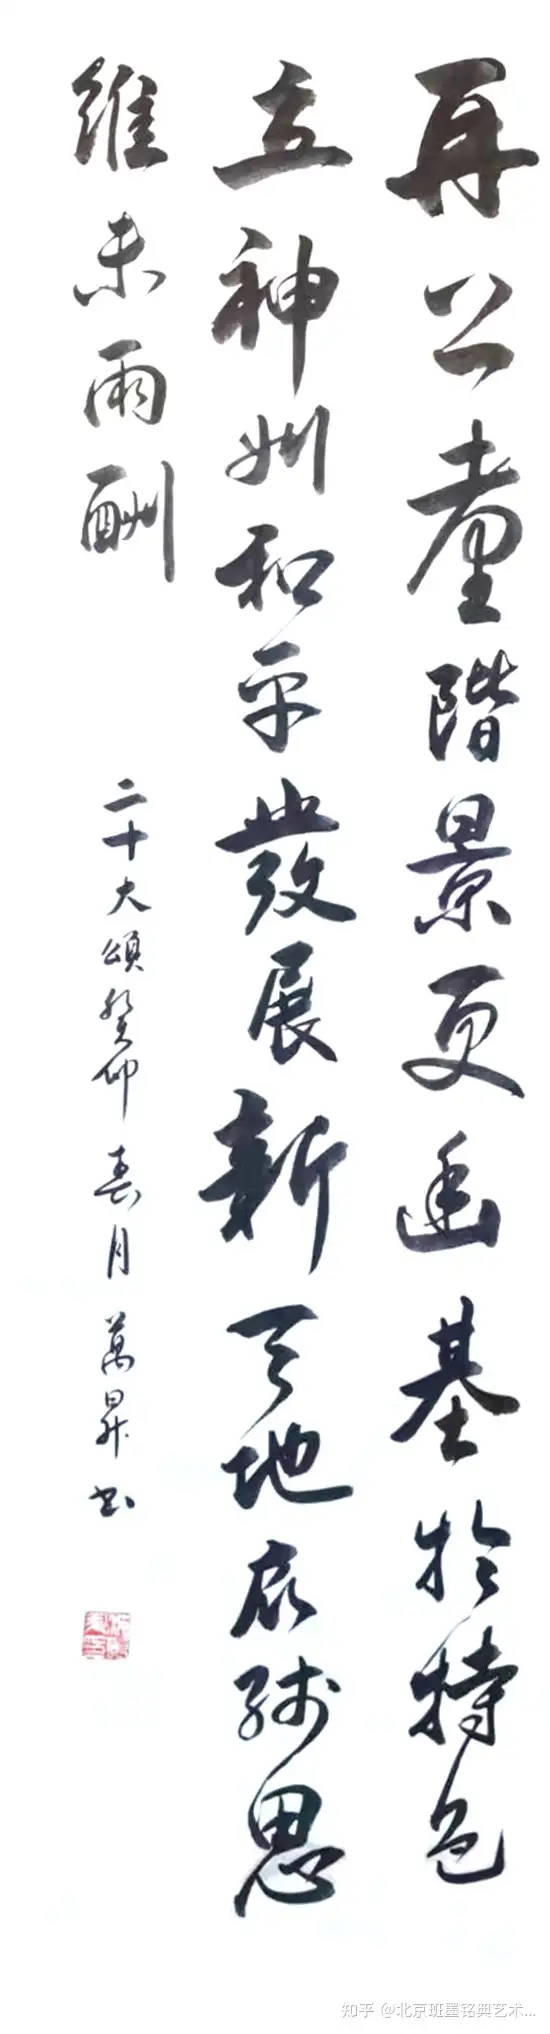 再上臺階景更幽基於特色
立神州和平發展新天地底綫思
維未雨酬
二十大頌癸卯春月 萬昇书
知乎 @北京班墨铭典艺术...